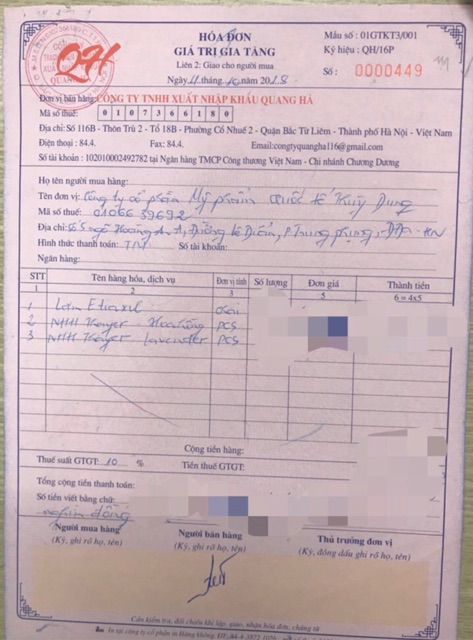 HÓA ĐƠN
GIÁ TRỊ GIA TĂNG
Liên 2: Giao cho người mua
Ngày 11 tháng 10 năm 2018
Mẫu số : 01GTKT3/001
Ký hiệu : QH/16P
Số : 0000449
QH
Đơn vị bán hàng: CÔNG TY TNHH XUẤT NHẬP KHẨU QUANG HÀ
Mã số thuế: 0 1 0 7 3 6 6 1 8 0
Địa chỉ: Số 116B - Thôn Trù 2 - Tổ 18B - Phường Cổ Nhuế 2 - Quận Bắc Từ Liêm - Thành phố Hà Nội - Việt Nam
Điện thoại : 84.4. Fax: 84.4. Email:congtyquangha116@gmail.com
Số tài khoản : 102010002492782 tại Ngân hàng TMCP Công thương Việt Nam - Chi nhánh Chương Dương
Họ tên người mua hàng:
Tên đơn vị: Công ty cổ phần Mỹ phẩm quốc tế Thùy Dung
Mã số thuế: 0106639692
Địa chỉ: Số 5 ngõ Hoàng An A, Đường Lê Duẩn, P Trung phụng, ĐĐ - HN
Hình thức thanh toán: TM Số tài khoản:
Ngân hàng:
STT Tên hàng hóa, dịch vụ Đơn vị tính Số lượng Đơn giá Thành tiền
1 2 3 5 6 = 4x5
1 Lăn Etiaxil
2 NHH Kayer - Hoa hồng pcs
3 NHH Kayer lavender pcs
Cộng tiền hàng:
Thuế suất GTGT: 10 % Tiền thuế GTGT:
Tổng cộng tiền thanh toán:
Số tiền viết bằng chữ:
nghìn đồng
Người mua hàng Người bán hàng Thủ trưởng đơn vị
(Ký, ghi rõ họ, tên) (Ký, ghi rõ họ, tên) (Ký, đóng dấu ghi rõ họ, tên)
(Cần kiểm tra, đối chiếu khi lập, giao, nhận hóa đơn, chứng từ